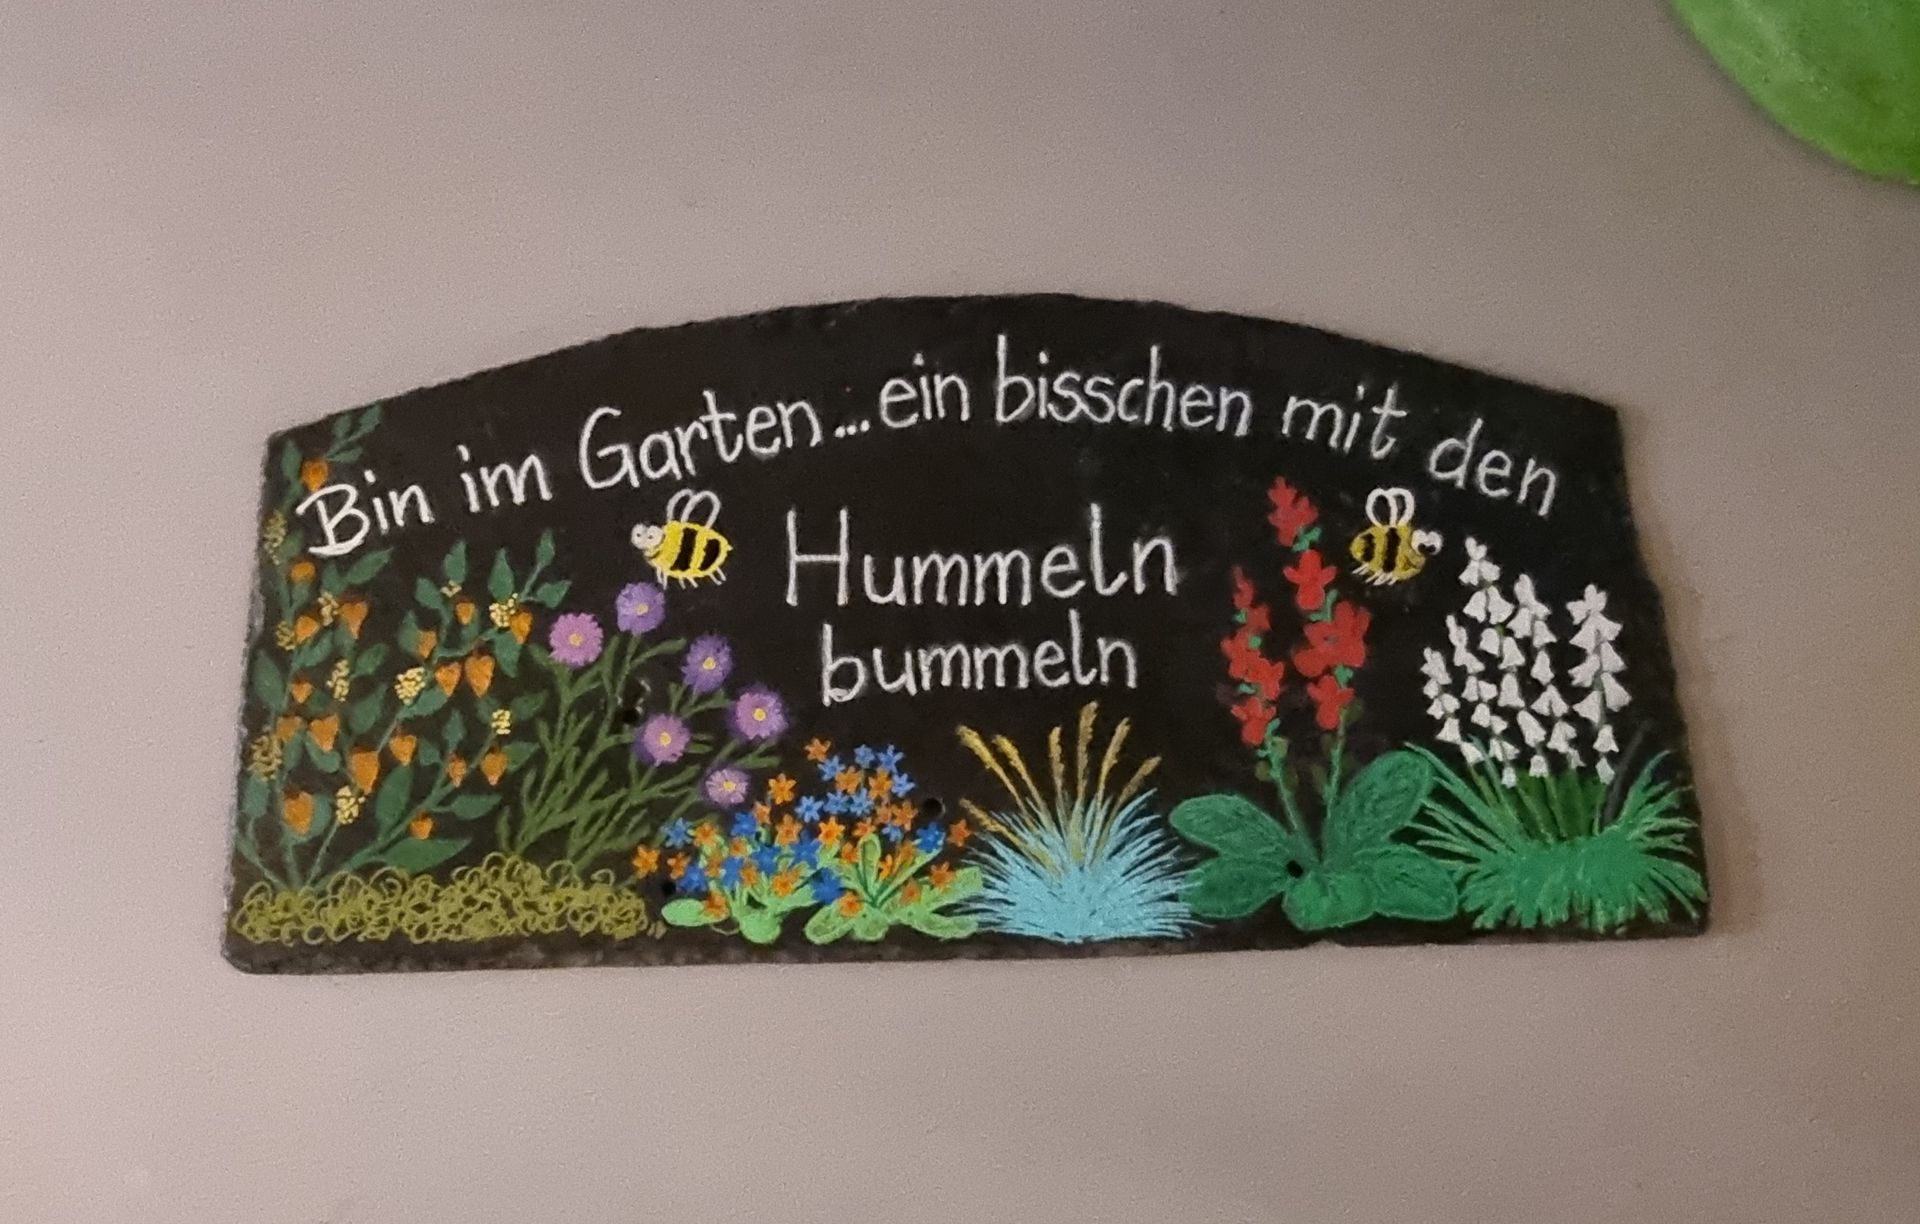 Bin im Garten...ein bisschen mit den
Hummeln
bummeln